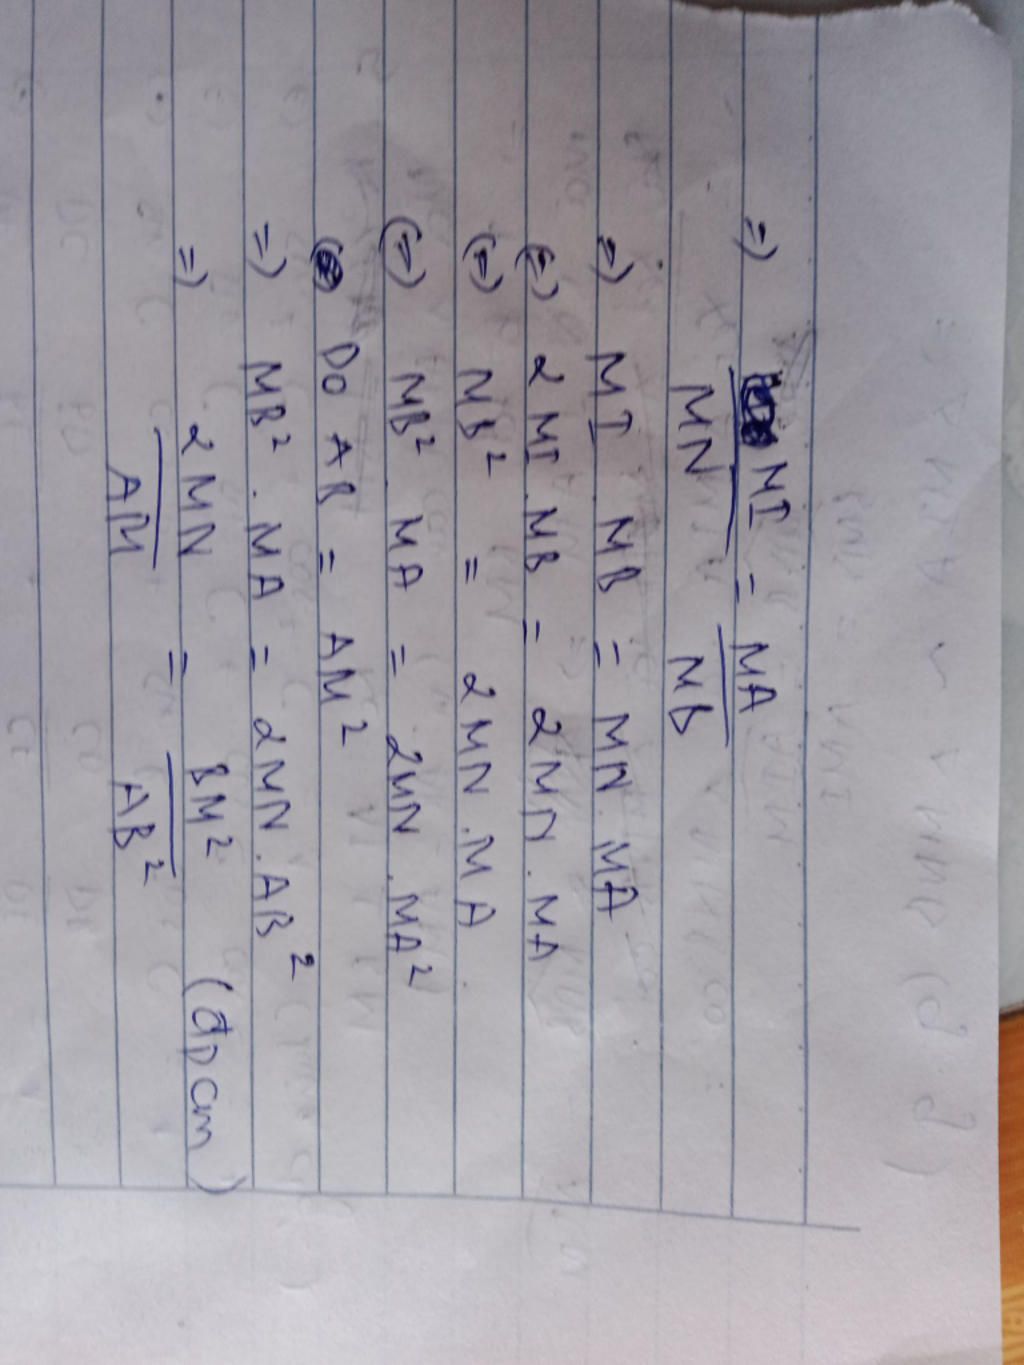 => MI/MN = MA/MB
=> MI . MB = MN . MA
(=) 2 MI . MB = 2 MN . MA
(=) MB² = 2 MN . MA
(=) MB² . MA = 2 MN . MA²
Do AB = AM²
=> MB² . MA = 2 MN . AB²
=> 2 MN/AM = BM²/AB² (đpcm)